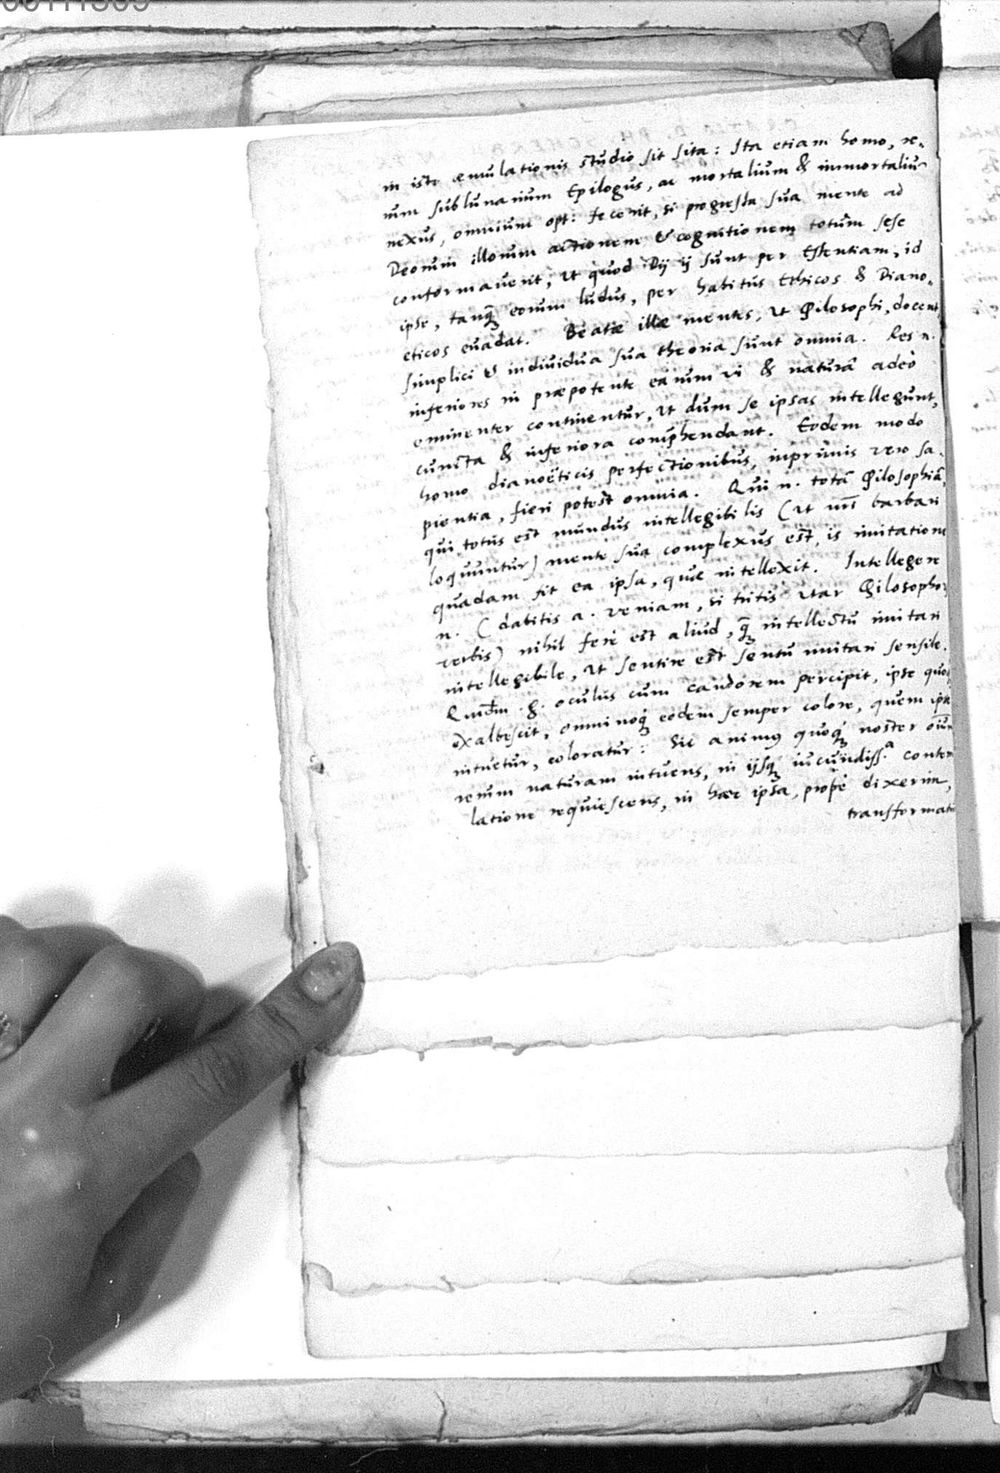 in isto æmulationis studio sit sita: Ita etiam homo, re-
rum sublunarium Epilogus, ac mortalium & immortaliũ
nexus, omnium opt: fecerit, si progressa sua mente ad
Deorum illorum actionem & cognitionem totum sese
conformaverit, ut quod Dij ij sunt per Essentiam, id
ipse, tanq̃ eorum ludus, per habitus Ethicos & Diano-
eticos evadat. Beatæ illæ mentes, ut Philosophi, docent
simplici & individua sua theoria sunt omnia. Res n.
inferiores in præpotente earum vi & naturâ adeò
eminenter continentur, ut dum se ipsas intellegunt,
cuncta & inferiora comp̃hendant. Eodem modo
homo dianoëticis perfectionibus, inprimis vero sa-
pientia, fieri potest omnia. Qui n. totã Philosophiã,
qui totus est mundus intellegibilis (ut nr̃i barbari
loquuntur) mente sua complexus est, is imitatione
quadam fit ea ipsa, quæ intellexit. Intellegere
n. (dabitis a. veniam, si tritis utar Philosopho-
verbis) nihil fere est aliud, q̃ intellectu imitari
intellegibile, ut sentire est sensu imitari sensile.
g. oculus cum candorem percipit, ipse quoq
exalbescit, omninoq; eodem semper colore, quem ipse
intuetur, coloratur: Sic animus quoq; noster oium
rerum naturam intuens, in ijsq; iucundiss.a contem
latione requiescens, in hæc ipsa, propè dixerim,
transformatu